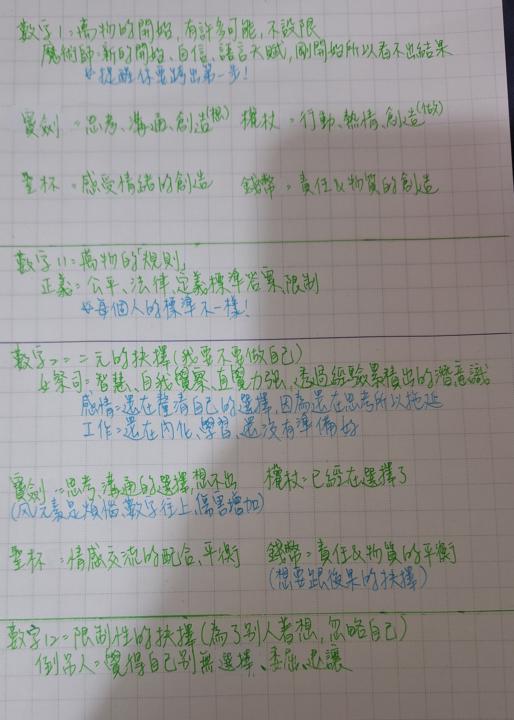 數字1：萬物的開始，有許多可能，不設限
魔術師：新的開始、自信、語言天賦，剛開始所以看不出結果
提醒你要跨出第一步！
寶劍：思考、溝通、創造(想)  權杖：行動、熱情、創造(做)
聖杯：感受情緒的創造  錢幣：責任&物質的創造
數字11：萬物的「規則」
正義：公平、法律、定義標準答案、限制
每個人的標準不一樣！
數字2：二元的抉擇(我要不要做自己)
女祭司：智慧、自我覺察、直覺力強、透過經驗累積出的潛意識
感情：還在釐清自己的選擇，因為還在思考所以拖延
工作：還在內化、學習、還沒有準備好
寶劍：思考、溝通的選擇，想不出  權杖：已經在選擇了
(風元素是煩惱，數字往上，傷害增加)
聖杯：情感交流的配合、平衡  錢幣：責任&物質的平衡
(想要跟後果的抉擇)
數字12：限制性的抉擇(為了別人著想，忽略自己)
倒吊人：覺得自己別無選擇、委屈、退讓